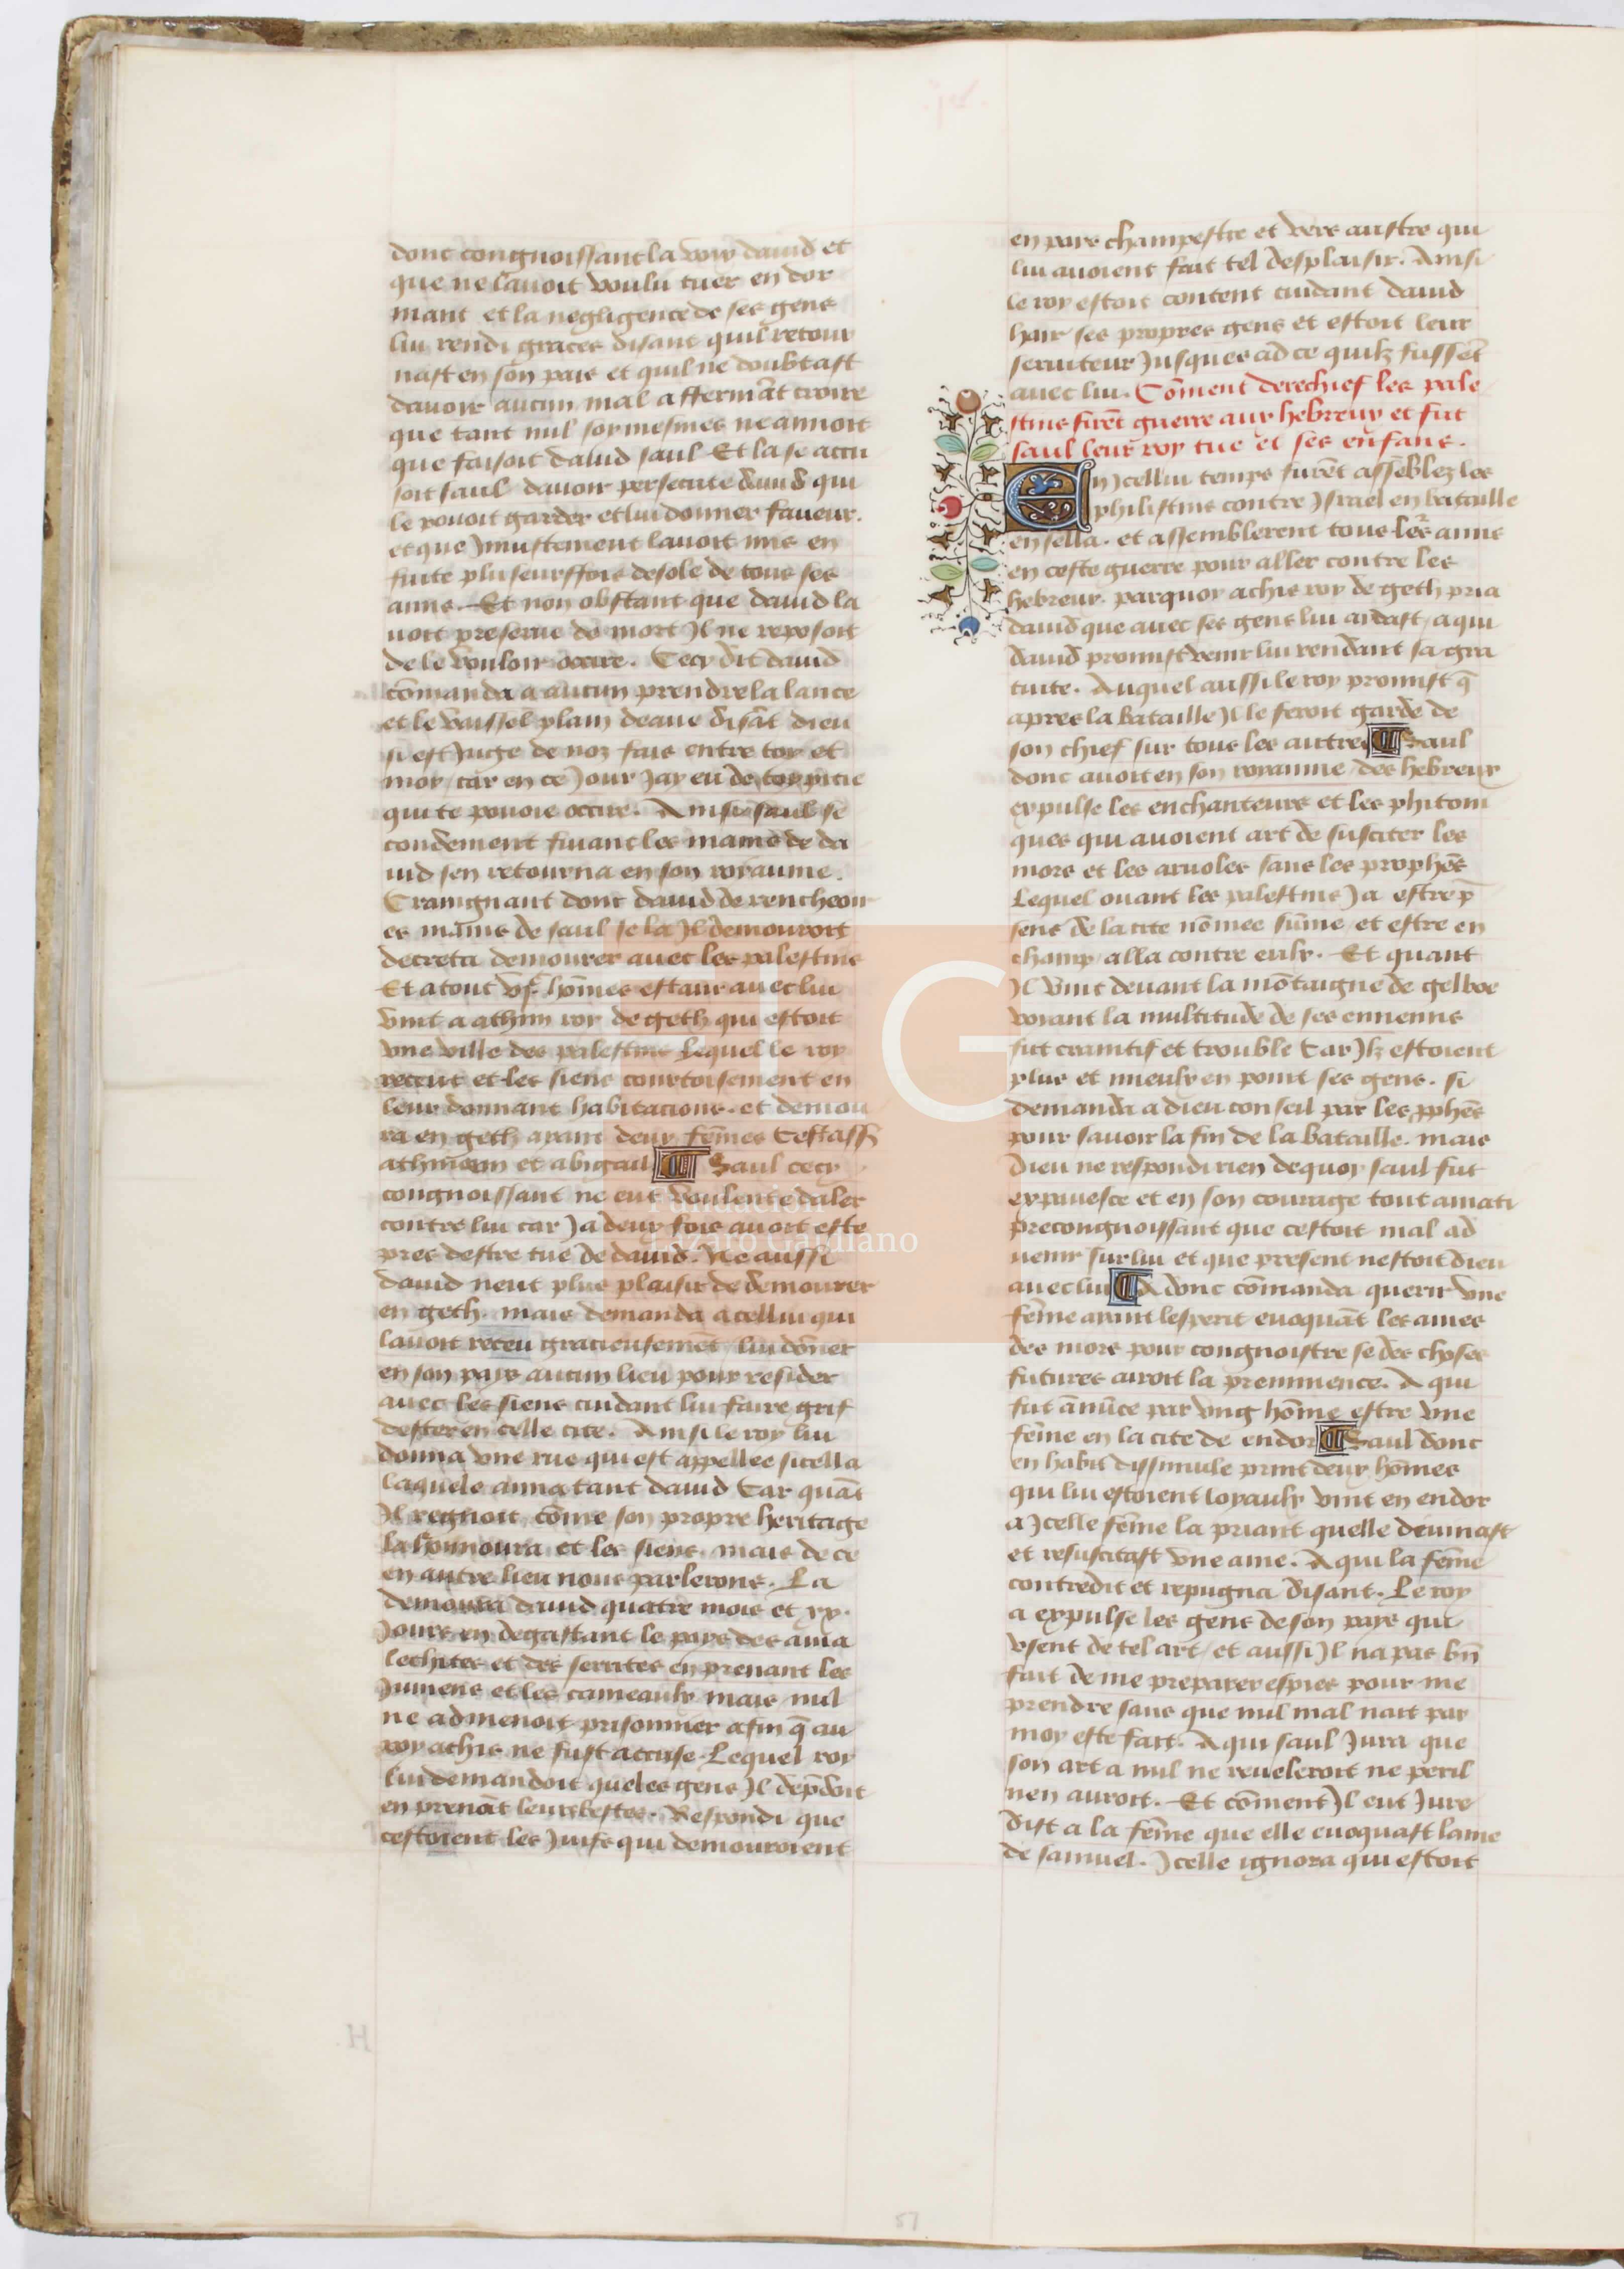 donc congnoissant la voix dauid et
que ne lauoit voulu tuer en dor
mant et la negligence de ses gens
lui rendi graces disant quil retour
nast en son pais et quil ne doubtast
dauoir aucun mal affermãt croire
que tant nul soy mesmes ne amoit
que faisoit dauid saul Et la se accu
soit saul dauoir persecute dauid qui
le pouoit garder et lui donner faueur.
et que Jniustement lauoit mis en
fuite pluseurffois desole de tous ses
amis. Et non obstant que dauid la
uoit preserue de mort Jl ne reposoit
de le vouloir occire. Cecy dit dauid
cõmanda a aucun prendre la lance
et le vaissel plain deaue disãt dieu
si est Juge de noz fais entre toy et
moy car en ce Jour Jay eu de toy pitie
qui te pouoie occire. Ainsi saul se
condement fuiant les mains de da
uid sen retourna en son royaume.
Craingnant donc dauid de rencheoir
es mains de saul se la Jl demouroit
decreta demourer auec les palestins
Et a tout vjᶜ hõmes estans auec lui
vint a achim roy de geth qui estoit
vne ville des palestins lequel le roy
receut et les siens courtoisement en
leur donnant habitacions. et demou
ra en geth ayant deux fẽmes Cestass̃
achinoem et abigail ¶ Saul cecy
congnoissant ne eut voulente daler
contre lui car Ja deux fois auoit este
pres destre tue de dauid. Ne aussi
dauid neut plus plaisir de demourer
en geth. mais demanda a cellui qui
lauoit receu gracieusemẽt lui dõner
en son pays aucun lieu pour resider
auec les siens cuidant lui faire grif
dester en celle cite. Ainsi le roy lui
donna vne rue qui est appellee sicella
laquele ama tant dauid Car quãt
Jl regnoit cõme son propre heritage
la honnoura et les siens. mais de ce
en autre lieu nous parlerons. La
demoura dauid quatre mois et xx.
Jours en degastant le pays des ama
lechites et des serrites en prenant les
Jumens et les cameaulx mais nul
ne admenoit prisonnier afin q̃ au
roy achis ne fust accuse. Lequel roy
lui demandoit queles gens Jl dep̃doit
en prenãt leurs bestes. Respondi que
cestoient les Juifs qui demouroient
en pais champestre et vers austre qui
lui auoient fait tel desplaisir. Ainsi
le roy estoit content cuidant dauid
hair ses propres gens et estoit leur
seruiteur Jusques ad ce quilz fussẽt
auec lui. Cõment derechief les pale
stins firẽt guerre aux hebreux et fut
saul leur roy tue et ses enfans.
En Jcellui temps furẽt assẽblez les
philistins contre Jsrael en bataille
en sella. et assemblerent tous les amis
en ceste guerre pour aller contre les
hebreux. parquoy achis roy de geth pria
dauid que auec ses gens lui aidast / a qui
dauid promist venir lui rendant sa gra
tuite. Auquel aussi le roy promist q̃
apres la bataille Jl le feroit garde de
son chief sur tous les autres ¶ Saul
donc auoit en son royaume des hebreux
expulse les enchanteurs et les phitoni
ques qui auoient art de susciter les
mors et les aruoles sans les prophẽs
Lequel ouant les palestins Ja estre p̃
sens de la cite nõmee sũme et estre en
champ / alla contre eulx. Et quant
Jl vint deuant la mõtaigne de gelboe
voiant la multitude de ses ennemis
fut craintif et trouble Car Jlz estoient
plus et mieulx en point ses gens. si
demanda a dieu conseil par les p̃phẽs
pour sauoir la fin de la bataille. mais
dieu ne respondi rien dequoy saul fut
expauesce et en son courage tout amati
precongnoissant que cestoit mal ad
uenir sur lui et que present nestoit dieu
auec lui ¶ A donc cõmanda querir vne
fẽme aiant lesperit euoquãt les ames
des mors pour congnoistre se des choses
futures auroit la preminence. A qui
fut ãnũce par vng hõme estre vne
fẽme en la cite de endor ¶ Saul donc
en habit dissimule print deux hõmes
qui lui estoient loyaulx vint en endor
a Jcelle fẽme la priant quelle deuinast
et resuscitast vne ame. A qui la fẽme
contredit et repugna disant. Le roy
a expulse les gens de son pays qui
vsent de tel art / et aussi Jl na pas bñ
fait de me preparer espies pour me
prendre sans que nul mal nait par
moy este fait. A qui saul Jura que
son art a nul ne reueleroit ne peril
nen auroit. Et cõment Jl eut Jure
dist a la fẽme que elle euoquast lame
de samuel. Jcelle ignora qui estoit
Fundación
Lázaro Galdiano
LG
H.
57